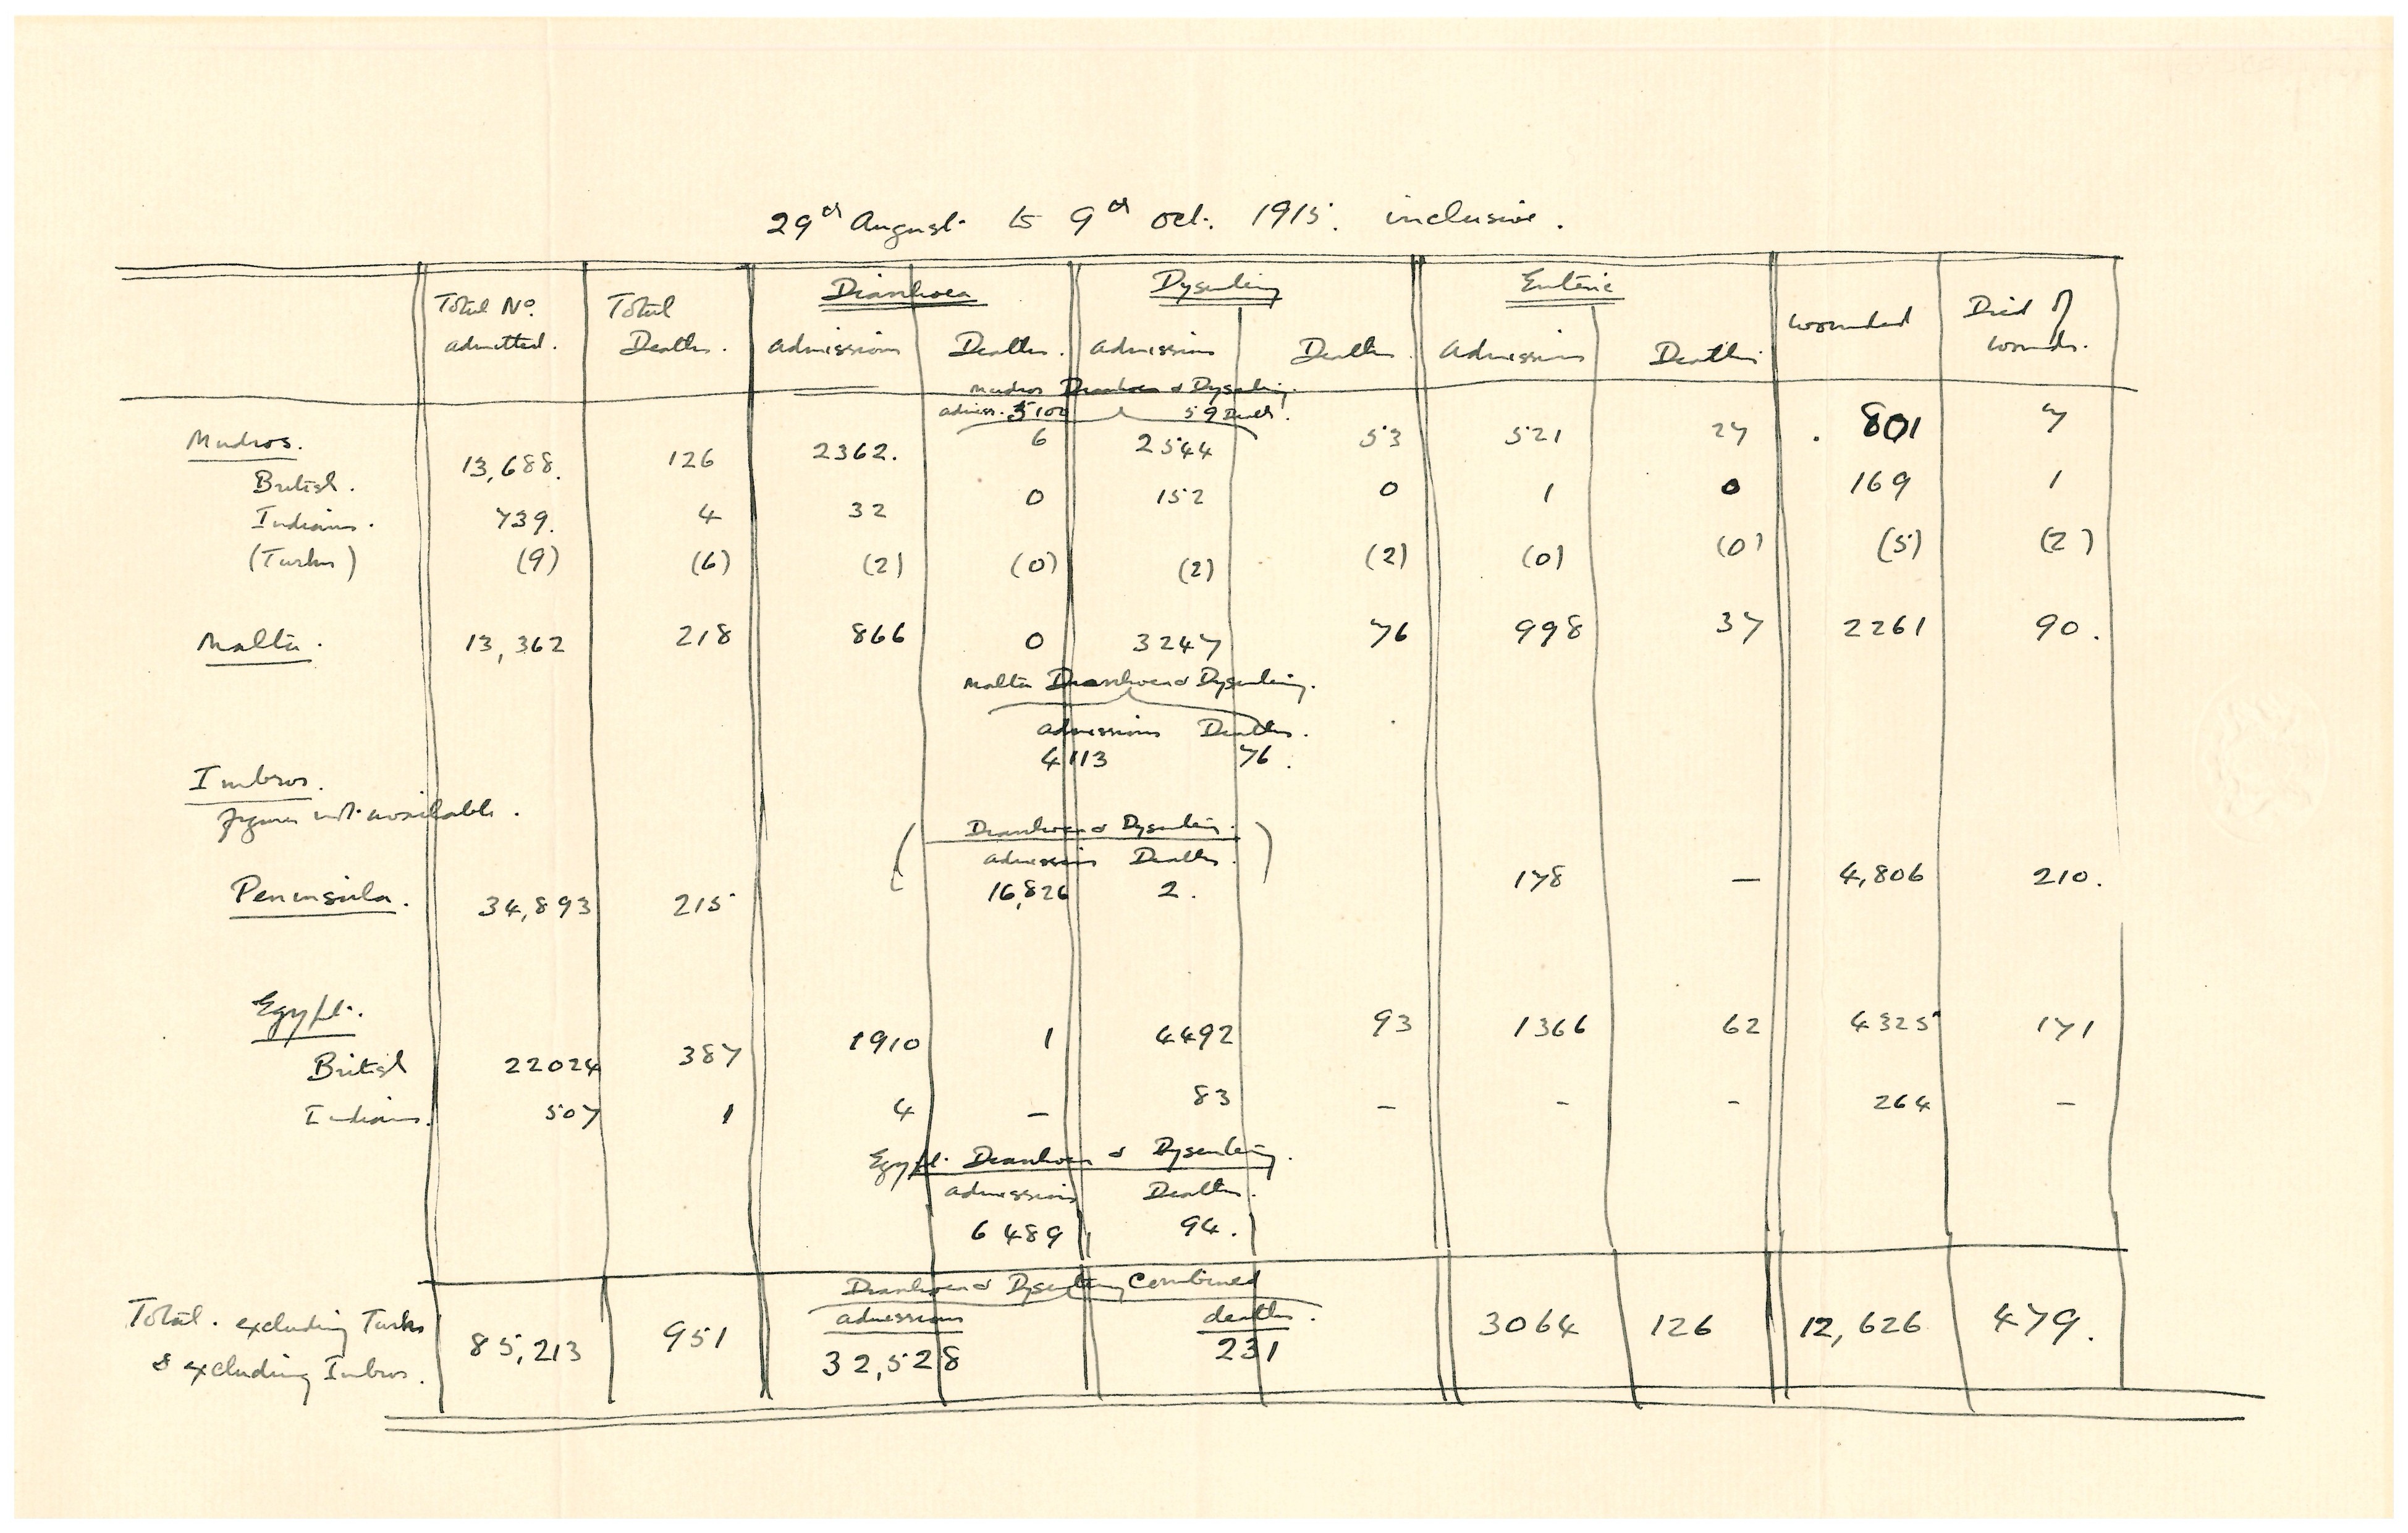 29th August to 9th Oct. 1915. inclusive.
Diarrhoea Dysentery Enteric
Total No. admitted. Total Deaths. Admissions Deaths. Admissions Deaths. Admissions Deaths Wounded Died of wounds.
Mudros Diarrhoea & Dysentery.
admiss. 5100 59 Deaths.
Mudros.
British. 13,688. 126 2362. 6 2544 53 521 27 801 7
Indians. 739. 4 32 0 152 0 1 0 169 1
(Turks) (9) (6) (2) (0) (2) (2) (0) (0) (5) (2)
Malta. 13,362 218 866 0 3247 76 998 37 2261 90.
Malta Diarrhoea & Dysentery.
admissions Deaths.
4113 76.
Imbros.
figures not available.
Diarrhoea & Dysentery.
admissions Deaths.
Peninsula. 34,893 215 16,826 2. 178 — 4,806 210.
Egypt.
British 22024 387 1910 1 4492 93 1366 62 4325 171
Indians. 507 1 4 — 83 – – – 264 –
Egypt. Diarrhoea & Dysentery.
admissions Deaths.
6489 94.
Diarrhoea & Dysentery Combined
admissions deaths.
Total. excluding Turks
& excluding Imbros. 85,213 951 32,528 231 3064 126 12,626 479.